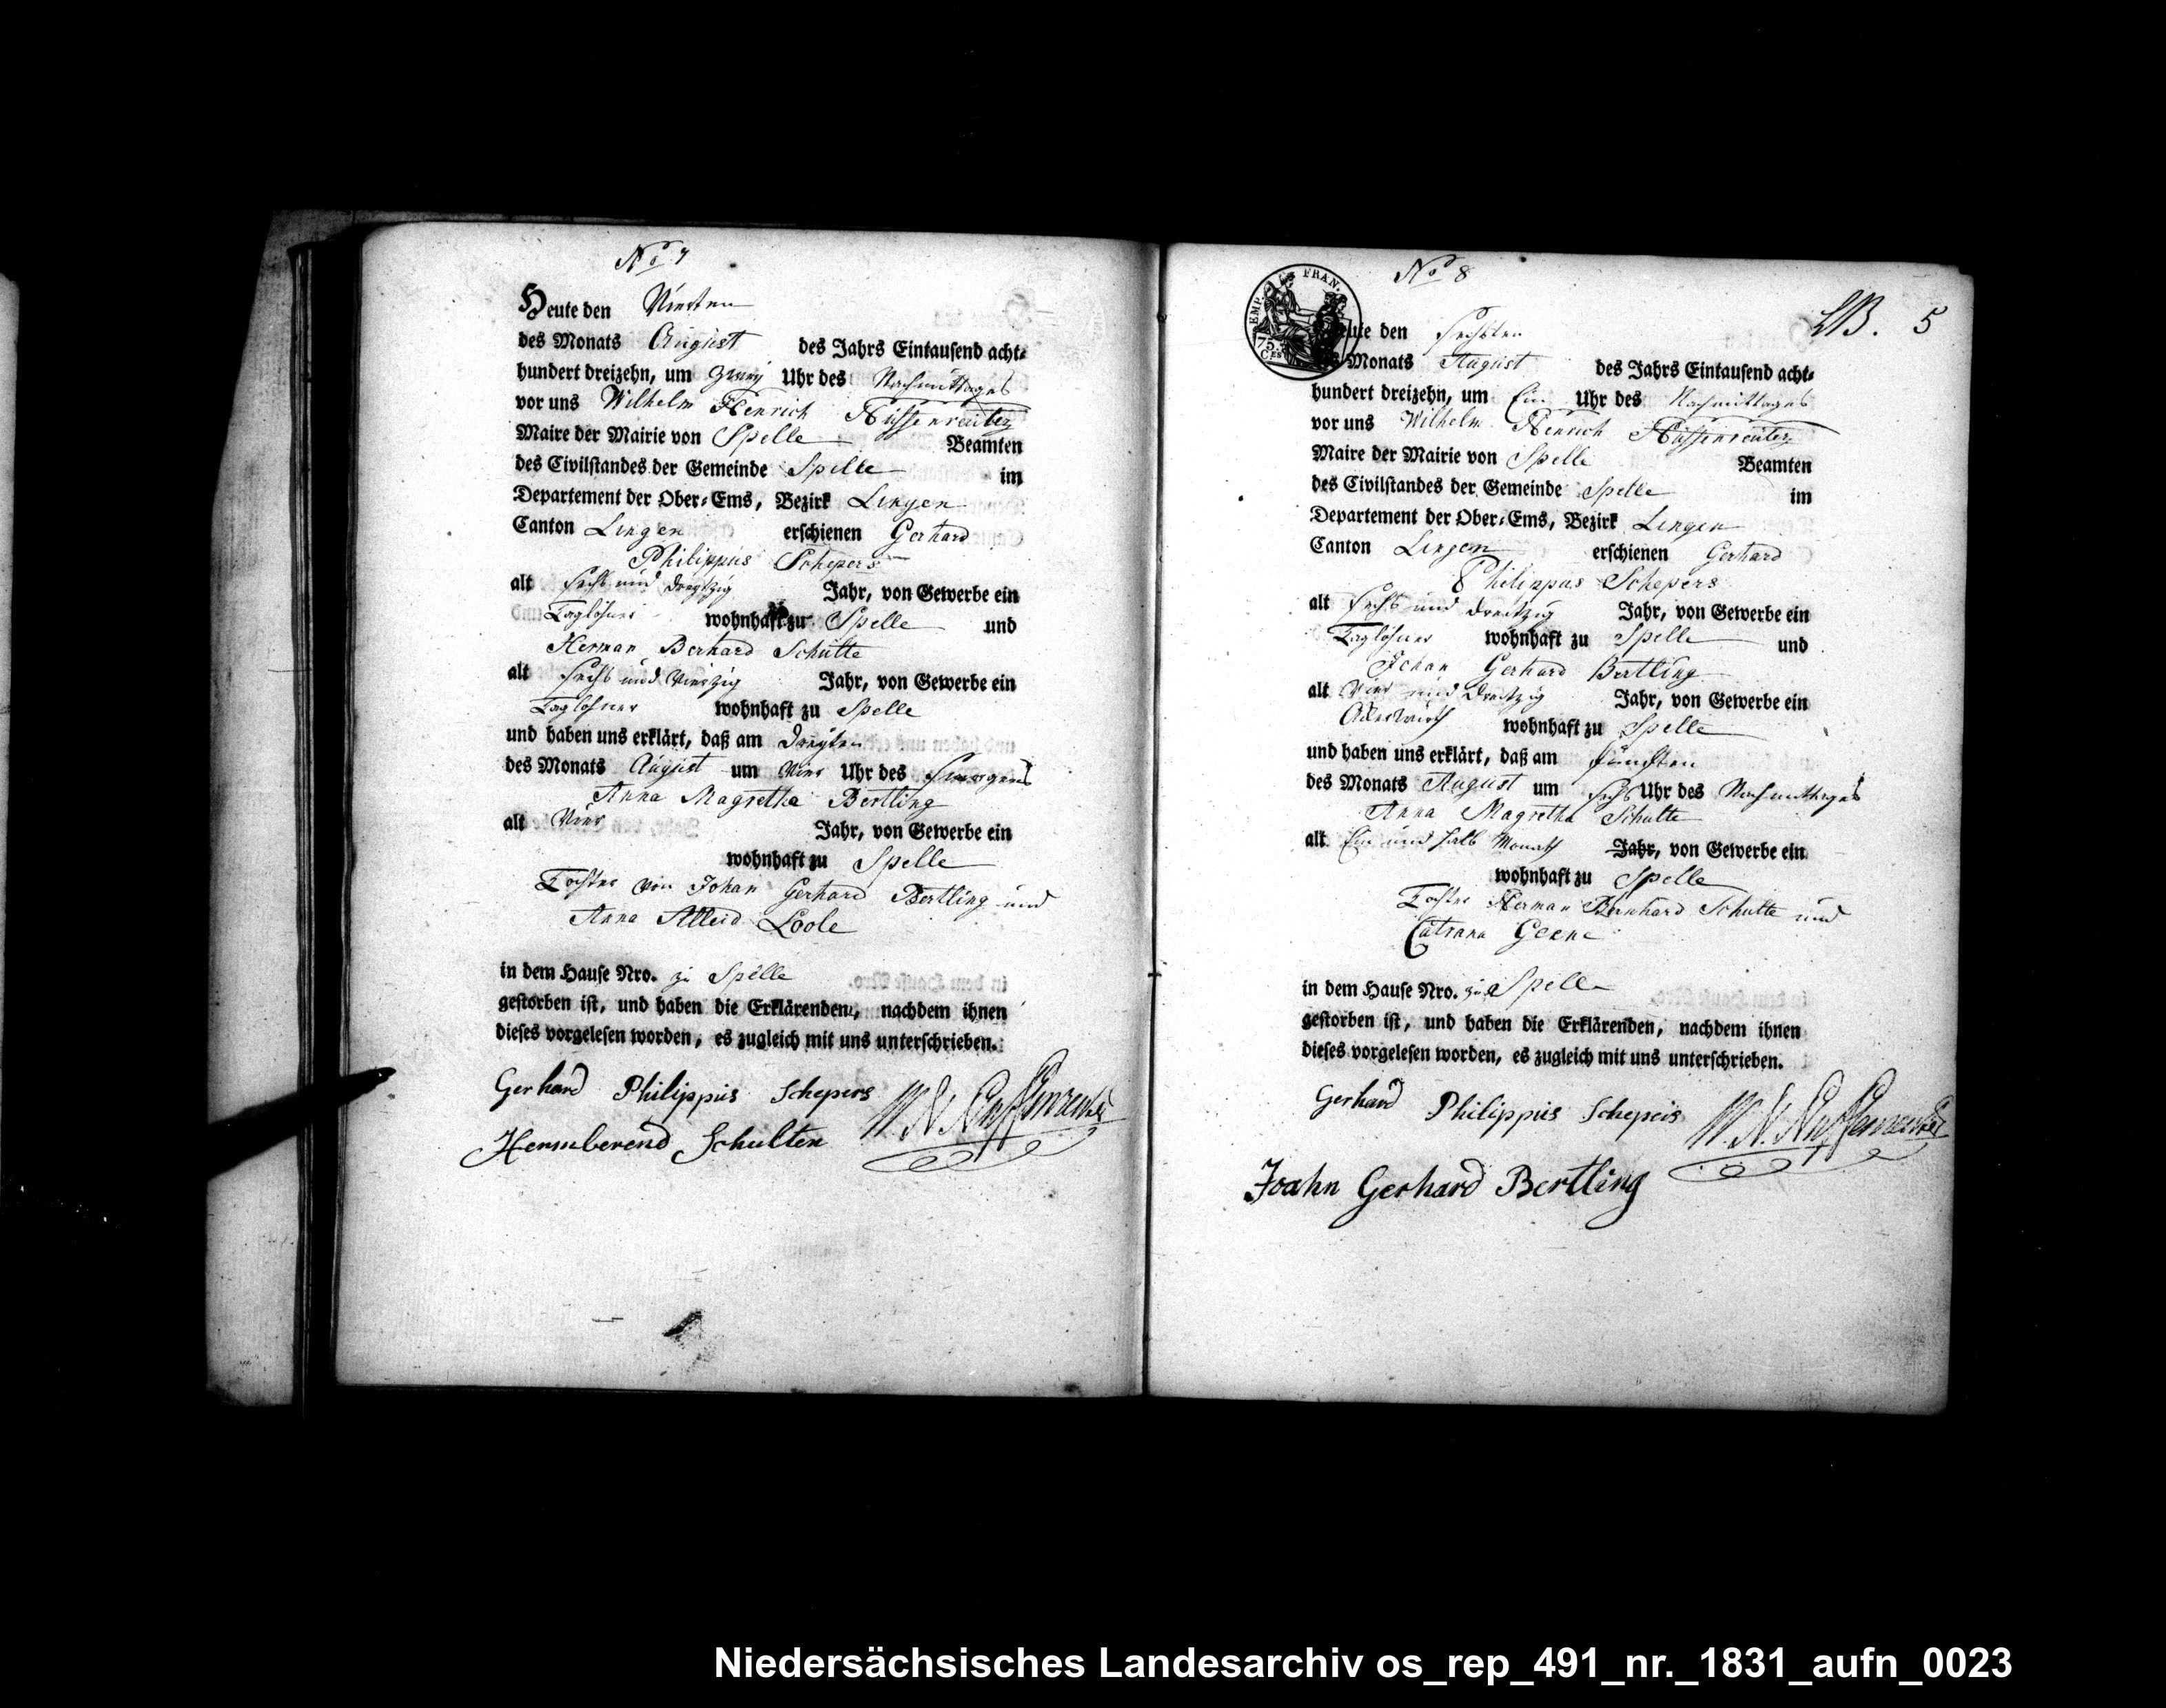 No 7
Heute den Vierten
des Monats August des Jahrs Eintausend acht-
hundert dreizehn, um zwey Uhr des Nachmittages
vor uns Wilhelm Henrich Hüssenreuter
Maire der Mairie von Spelle Beamten
des Civilstandes der Gemeinde Spelle im
Departement der Ober-Ems, Bezirk Lingen
Canton Lingen erschienen Gerhard
Philippus Schepers
alt sechs und dreytzig Jahr, von Gewerbe ein
Taglöhner wohnhaft zu Spelle und
Herman Berhard Schulte
alt sechs und Vierzig Jahr, von Gewerbe ein
Taglohner wohnhaft zu Spelle
und haben uns erklärt, daß am dreyten
des Monats August um vier Uhr des
Anna Magretha Bertling
alt Vier Jahr, von Gewerbe ein
wohnhaft zu Spelle
Tochter von Johan Gerhard Bertling und
Anna Alleid Loole
in dem Hause Nro. zu Spelle
gestorben ist, und haben die Erklärenden, nachdem ihnen
dieses vorgelesen worden, es zugleich mit uns unterschrieben.
Gerhard Philippus Schepers
Hermberend Schulten
No 8
LB. 5
EMP. FRAN.
75. Ces
Heute den sechsten
des Monats August des Jahrs Eintausend acht-
hundert dreizehn, um Ein Uhr des Nachmittages
vor uns Wilhelm Henrich Hüssenreuter
Maire der Mairie von Spelle Beamten
des Civilstandes der Gemeinde Spelle im
Departement der Ober-Ems, Bezirk Lingen
Canton Lingen erschienen Gerhard
Philippus Schepers
alt sechs und dreitzig Jahr, von Gewerbe ein
Taglöhner wohnhaft zu Spelle und
Johan Gerhard Bertling
alt Vier und dreitzig Jahr, von Gewerbe ein
Akerwirth wohnhaft zu Spelle
und haben uns erklärt, daß am fünften
des Monats August um sechs Uhr des Nachmittages
Anna Magretha Schulte
alt Ein und halb Monath Jahr, von Gewerbe ein
wohnhaft zu Spelle
Tochter Herman Bernhard Schulte und
Catrana
in dem Hause Nro. zu Spelle
gestorben ist, und haben die Erklärenden, nachdem ihnen
dieses vorgelesen worden, es zugleich mit uns unterschrieben.
Gerhard Philippus Schepers
Joahn Gerhard Bertling
Niedersächsisches Landesarchiv os_rep_491_nr._1831_aufn_0023